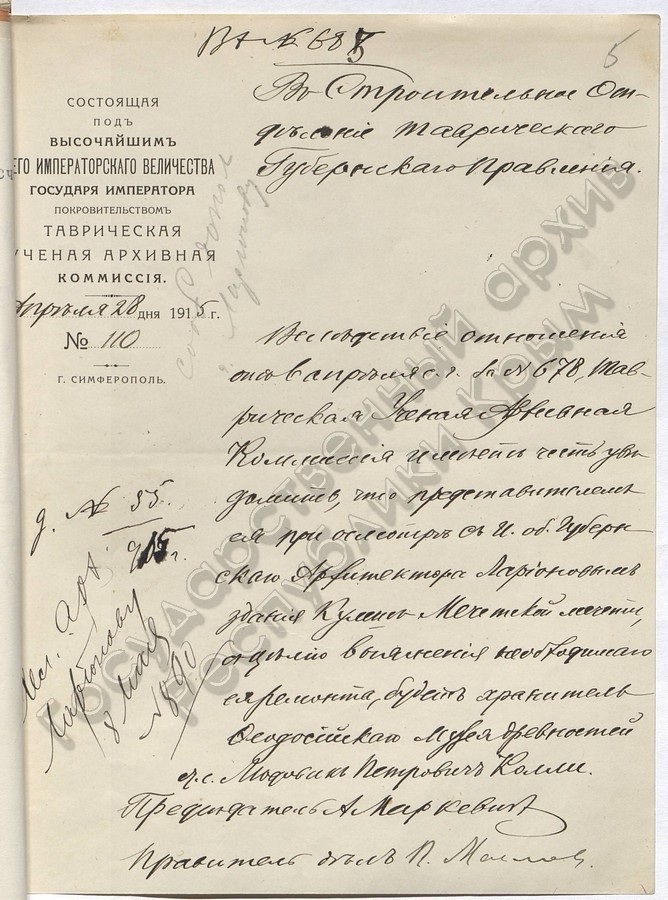 Вх № 685
5
Въ Строительное От-
дѣленіе Таврическаго
Губернскаго Правленія.
СОСТОЯЩАЯ
ПОДЪ
ВЫСОЧАЙШИМЪ
ЕГО ИМПЕРАТОРСКАГО ВЕЛИЧЕСТВА
ГОСУДАРЯ ИМПЕРАТОРА
ПОКРОВИТЕЛЬСТВОМЪ
ТАВРИЧЕСКАЯ
УЧЕНАЯ АРХИВНАЯ
КОММИССІЯ.
Апрѣля 28 дня 1915 г.
№ 110
Г. СИМФЕРОПОЛЬ.
Ларіонову
Вслѣдствіе отношенія
отъ апрѣля с. г. за № 678, Тав-
рическая Ученая Архивная
Коммиссія имѣетъ честь увѣ-
домить, что представителемъ
ея при осмотрѣ съ И. об. Губерн-
скаго Архитектора Ларіоновымъ
зданія Мечетской мечети,
съ цѣлію выясненія необходимаго
ея ремонта, будетъ хранитель
Ѳеодосійскаго Музея древностей
ч. с. Людовикъ Петровичъ Колли.
Предсѣдатель А Маркевичъ
Правитель дѣлъ П. Масловъ.
д. № 35
915 г.
Арх.
Ларіонову
8 мая
№ 890
Государственный архив
Республики Крым